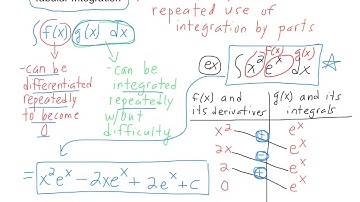 tabular integration
repeated use of
integration by parts
∫ f(x) g(x) dx
-can be
differentiated
repeatedly
to become
0
-can be
integrated
repeatedly
w/out
difficulty
ex
f(x) g(x)
∫ x² eˣ dx
f(x) and its derivatives
g(x) and its integrals
x² + eˣ
2x - eˣ
2 + eˣ
0 eˣ
= x²eˣ - 2xeˣ + 2eˣ + C